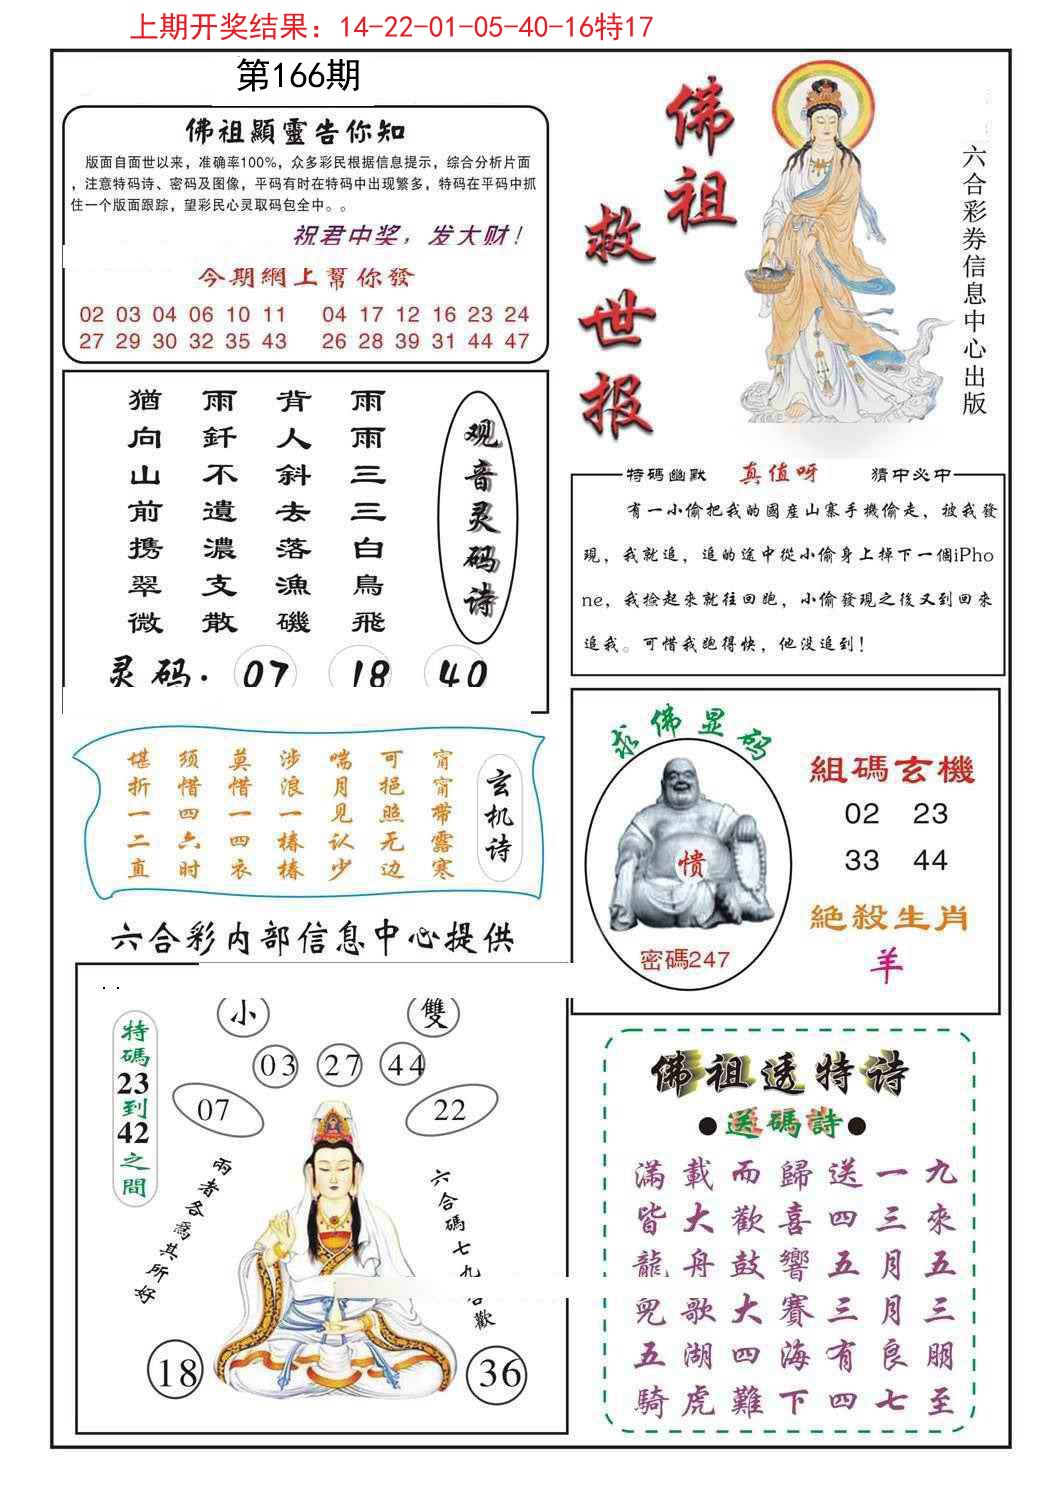 上期开奖结果：14-22-01-05-40-16特17
第166期
佛祖顯靈告你知
版面自面世以来，准确率100%，众多彩民根据信息提示，综合分析片面
，注意特码诗、密码及图像，平码有时在特码中出现繁多，特码在平码中抓
住一个版面跟踪，望彩民心灵取码包全中。。
祝君中奖，发大财！
今期網上幫你發
02 03 04 06 10 11 04 17 12 16 23 24
27 29 30 32 35 43 26 28 39 31 44 47
佛祖
救世报
六合彩券信息中心出版
观音灵码诗
雨雨三三白鳥飛
背人斜去落漁磯
雨釺不遺濃支散
猶向山前携翠微
灵码．07 18 40
特碼幽默 真值呀 猜中必中
有一小偷把我的國産山寨手機偷走，被我發
現，我就追，追的途中從小偷身上掉下一個iPho
ne，我撿起來就往回跑，小偷發現之後又到回來
追我。可惜我跑得快，他没追到！
玄机诗
甯甯带露寒
可挹照无边
喘月见认少
涉浪一椿椿
莫惜一四衣
须惜四六时
堪折一二直
求佛显码
愦
密碼247
組碼玄機
02 23
33 44
絕殺生肖
羊
六合彩内部信息中心提供
小 雙
03 27 44
07 22
特碼23到42之間
兩者各爲其所好
六合碼七九
歡
18 36
佛祖透特诗
●送碼詩●
滿載而歸送一九
皆大歡喜四三來
龍舟鼓響五月五
兒歌大賽三月三
五湖四海有良朋
騎虎難下四七至